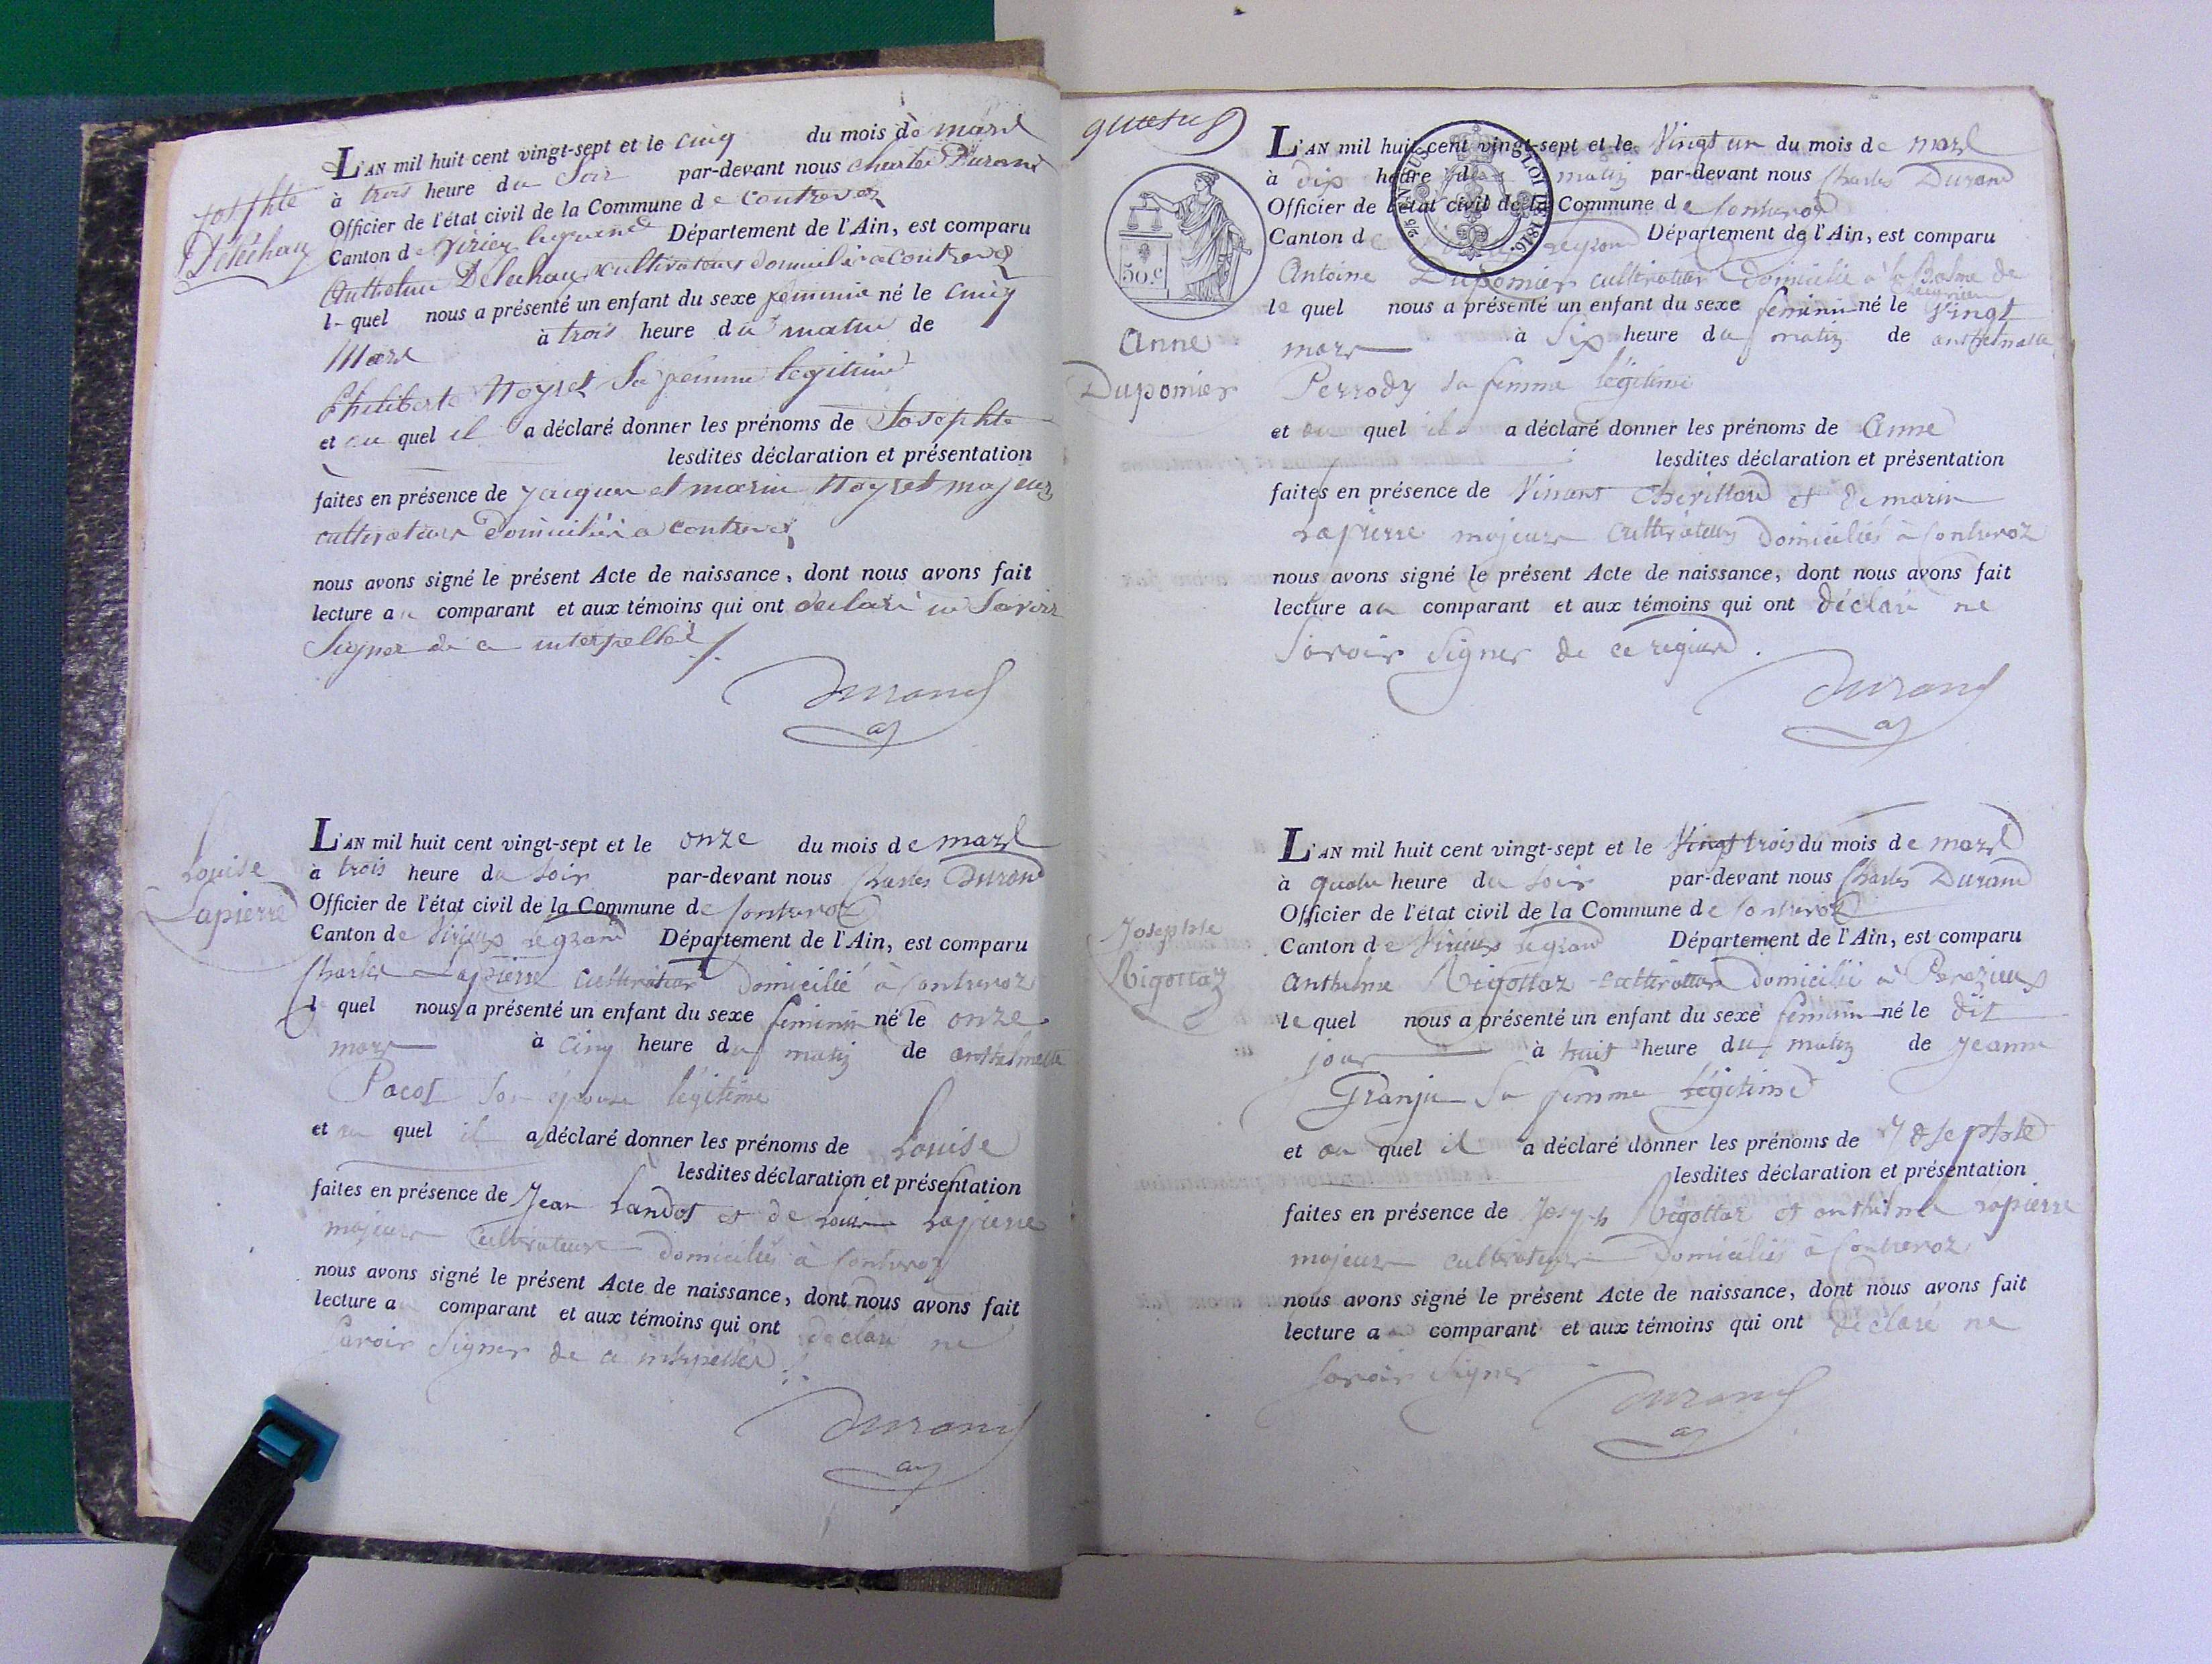 L'AN mil huit cent vingt-sept et le cinq du mois de mars
à trois heure du Soir par-devant nous charles Durand
Officier de l'état civil de la Commune de Contrevoz
Josephte
Délèchau
Canton de Virieu legrand Département de l'Ain, est comparu
Anthelme Délechau cultivateur domicilié a contrevoz
l- quel nous a présenté un enfant du sexe feminin né le cinq
Mars à trois heure du matin de
Philiberte Noyret Sa femme legitime
et au quel il a déclaré donner les prénoms de Josephte
lesdites déclaration et présentation
faites en présence de jacques et marin Noyret majeurs
cultivateurs domiciliés a contrevoz
nous avons signé le présent Acte de naissance, dont nous avons fait
lecture au comparant et aux témoins qui ont declaré ne Savoir
Signer de ce interpellés
Durand
L'AN mil huit cent vingt-sept et le onze du mois de mars
à trois heure du soir par-devant nous Charles Durand
Louise
Lapierre
Officier de l'état civil de la Commune de Contrevoz
Canton de Virieux legrand Département de l'Ain, est comparu
Charles Lapierre cultivateur Domicilié à Contrevoz
le quel nous a présenté un enfant du sexe feminin né le onze
mars à cinq heure du matin de anthelmette
Pacot son épouse légitime
et au quel il a déclaré donner les prénoms de Louise
lesdites déclaration et présentation
faites en présence de Jean Landot et de Louis Lapierre
majeurs Cultivateurs Domiciliés à Contrevoz
nous avons signé le présent Acte de naissance, dont nous avons fait
lecture a comparant et aux témoins qui ont déclaré ne
Savoir Signer de ce interpellés
Durand
L'AN mil huit cent vingt-sept et le Vingt un du mois de mars
à dix heure du matin par-devant nous Charles Durand
Officier de l'état civil de la Commune de Contrevoz
Canton de legrand Département de l'Ain, est comparu
TIMBRE LOI DE 1816.
50 c
Antoine Dupomier cultivateur Domicilié à la Balme de
le quel nous a présenté un enfant du sexe feminin né le Vingt
Anne
Dupomier
mars à Six heure du matin de anthelmette
Perrody sa femme légitime
et au quel il a déclaré donner les prénoms de Anne
lesdites déclaration et présentation
faites en présence de Vinant Chevillard et de marin
Lapierre majeurs Cultivateurs Domiciliés à Contrevoz
nous avons signé le présent Acte de naissance, dont nous avons fait
lecture au comparant et aux témoins qui ont déclaré ne
Savoir Signer de ce réquis
Durand
L'AN mil huit cent vingt-sept et le Vingt trois du mois de mars
à quatre heure du soir par-devant nous Charles Durand
Officier de l'état civil de la Commune de Contrevoz
Josephte
Rigottaz
Canton de Virieux legrand Département de l'Ain, est comparu
Anthelme Rigottaz cultivateur Domicilié à Perezieux
le quel nous a présenté un enfant du sexe feminin né le dit
jour à huit heure du matin de jeanne
Granju sa femme légitime
et au quel il a déclaré donner les prénoms de Josephte
lesdites déclaration et présentation
faites en présence de Joseph Rigottaz et anthelme Lapierre
majeurs cultivateurs Domiciliés à Contrevoz
nous avons signé le présent Acte de naissance, dont nous avons fait
lecture a comparant et aux témoins qui ont déclaré ne
Savoir Signer
Durand